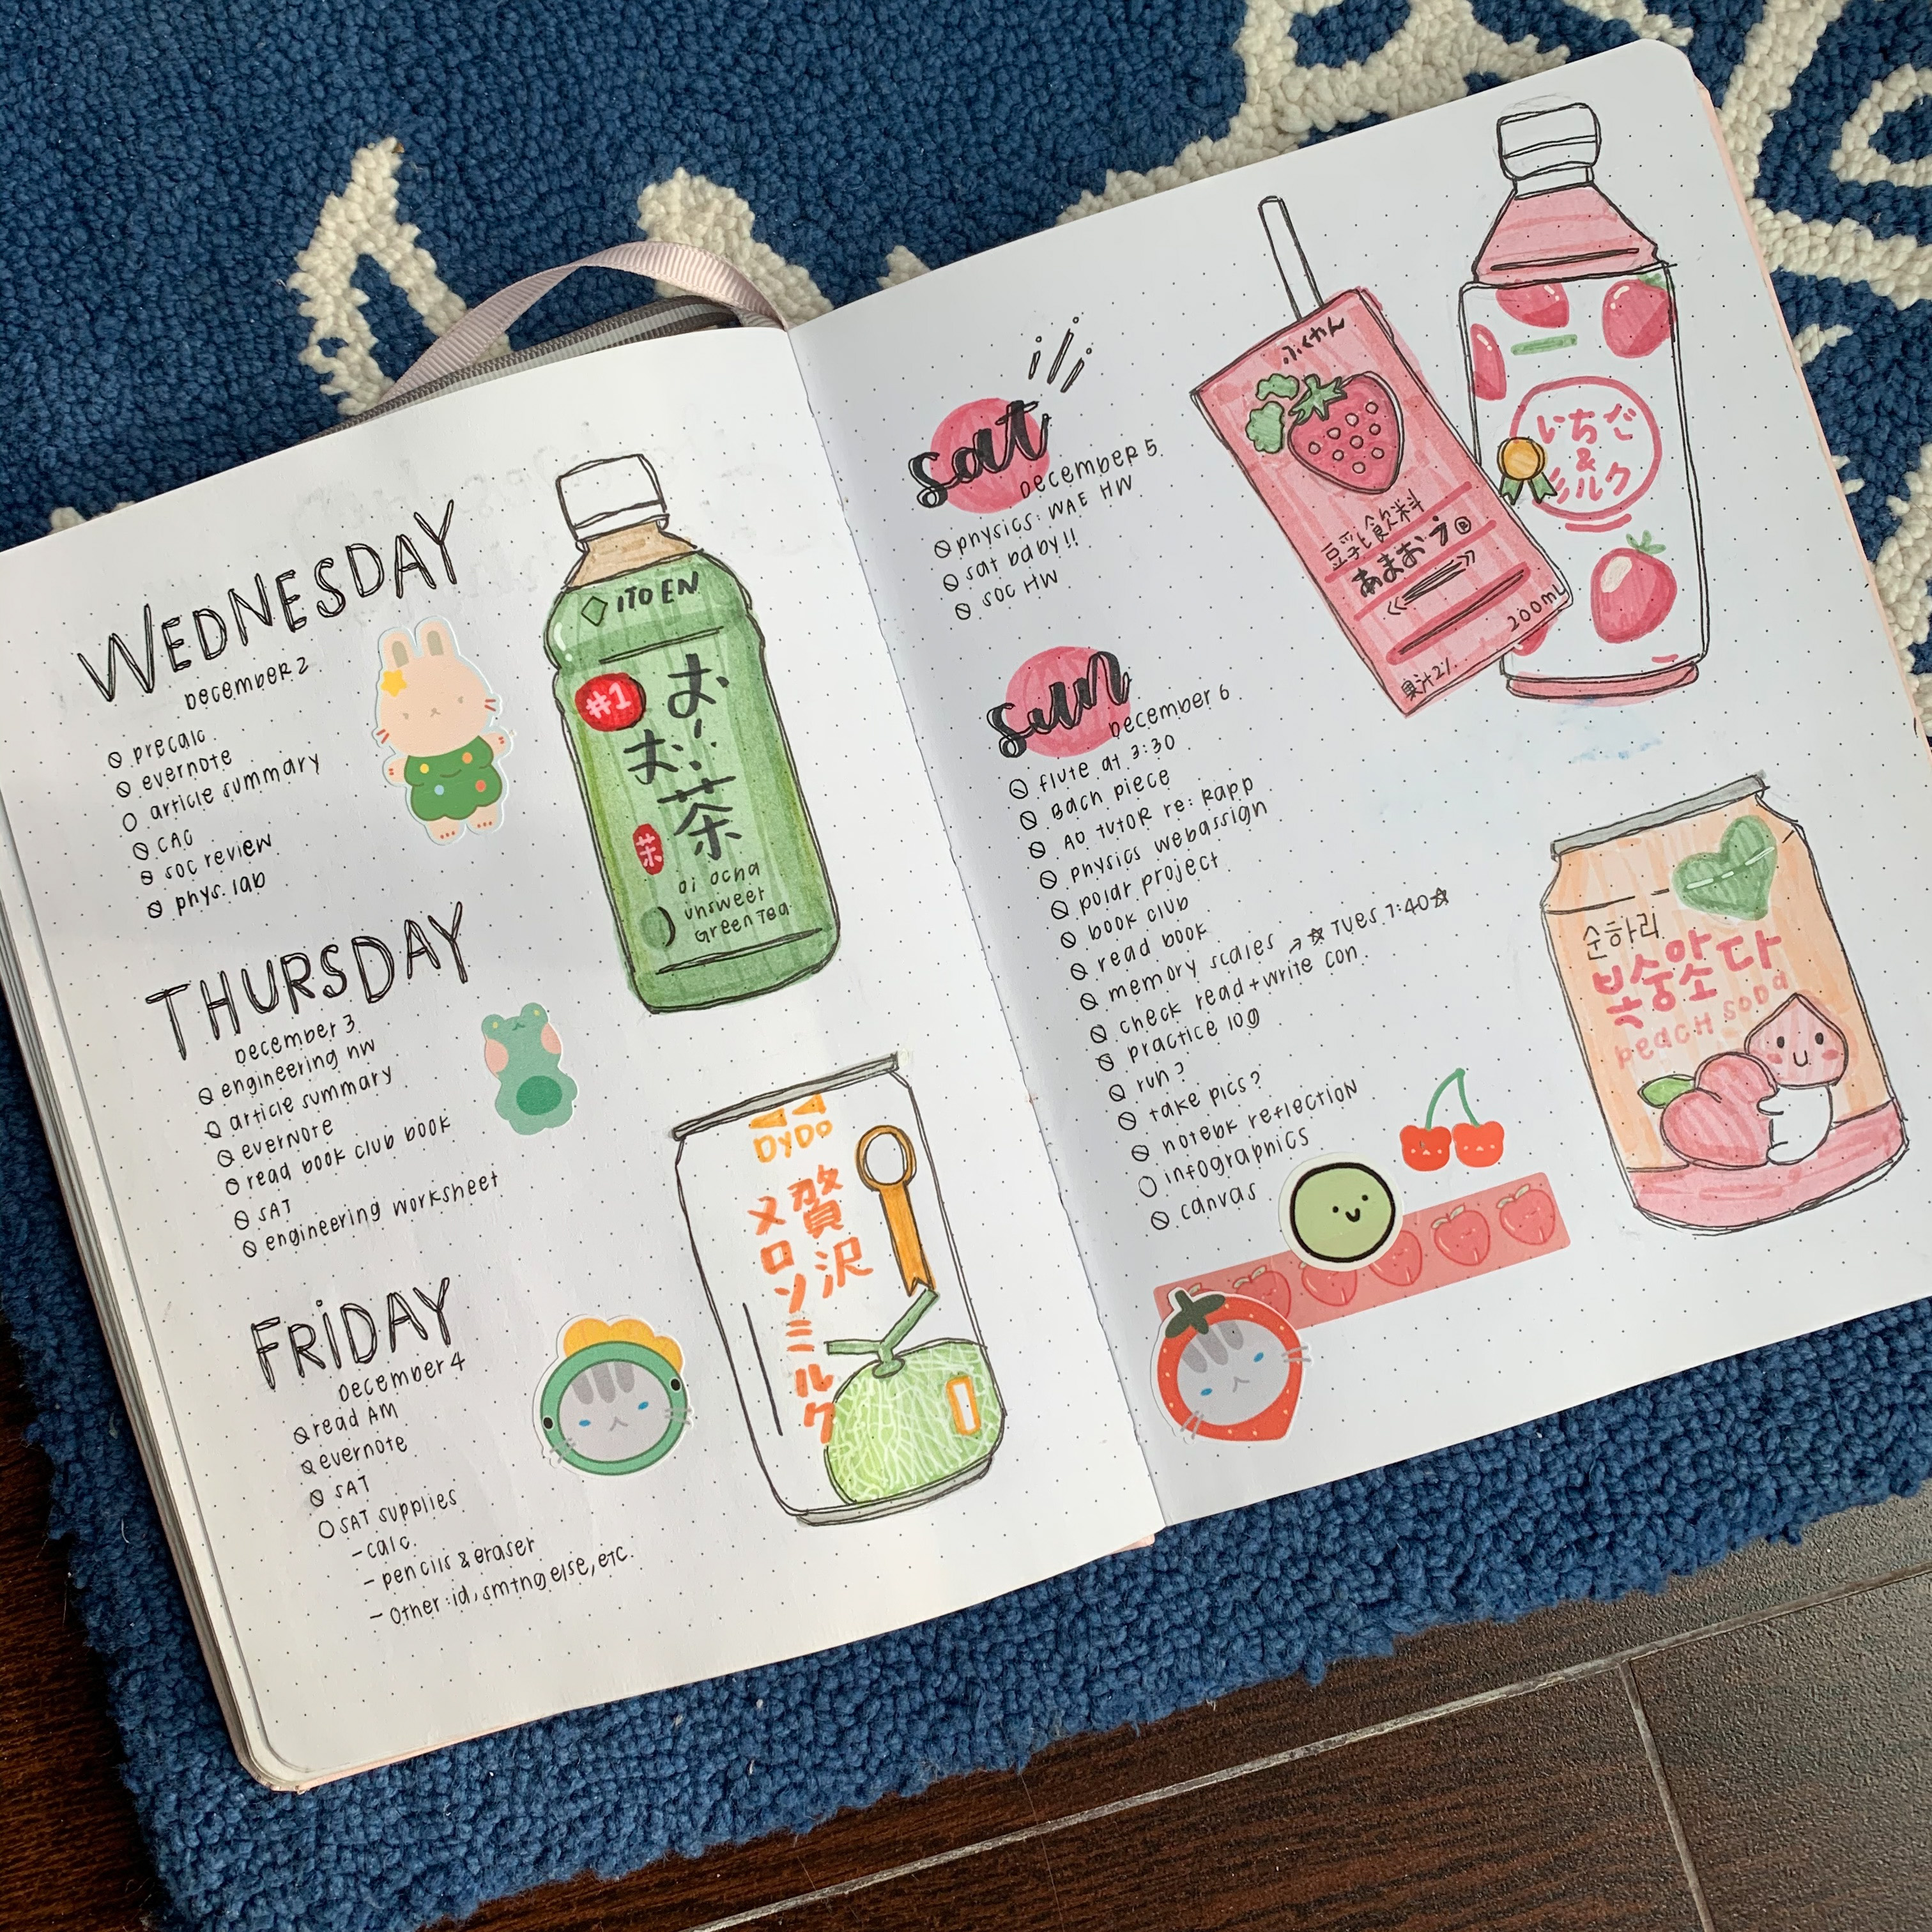 WEDNESDAY
DECEMBER 2
precalc
evernote
article summary
CAC
SOC review
phys. lab
THURSDAY
DECEMBER 3
engineering hw
article summary
evernote
read book club book
SAT
engineering worksheet
FRIDAY
DECEMBER 4
read AM
evernote
SAT
SAT supplies
- calc.
- pencils & eraser
- Other: id, smthng else, etc.
ITO EN
#1
お〜いお茶
茶
oi ocha
unsweet
Green Tea
DyDo
贅沢
メロンミルク
sat
December 5
physics: WAE HW
sat baby!!
SOC HW
sun
December 6
flute at 3:30
Bach piece
AO tutor re: Rapp
physics webassign
polar project
book club
read book
memory scales → ☆ TUES 7:40 ☆
check read + write con.
practice 10g
run?
take pics?
notebk reflection
infographics
canvas
ふくれん
豆乳飲料
あまおう
200mL
果汁2%
いちご
&
ミルク
순하리
복숭앗소다
peach soda